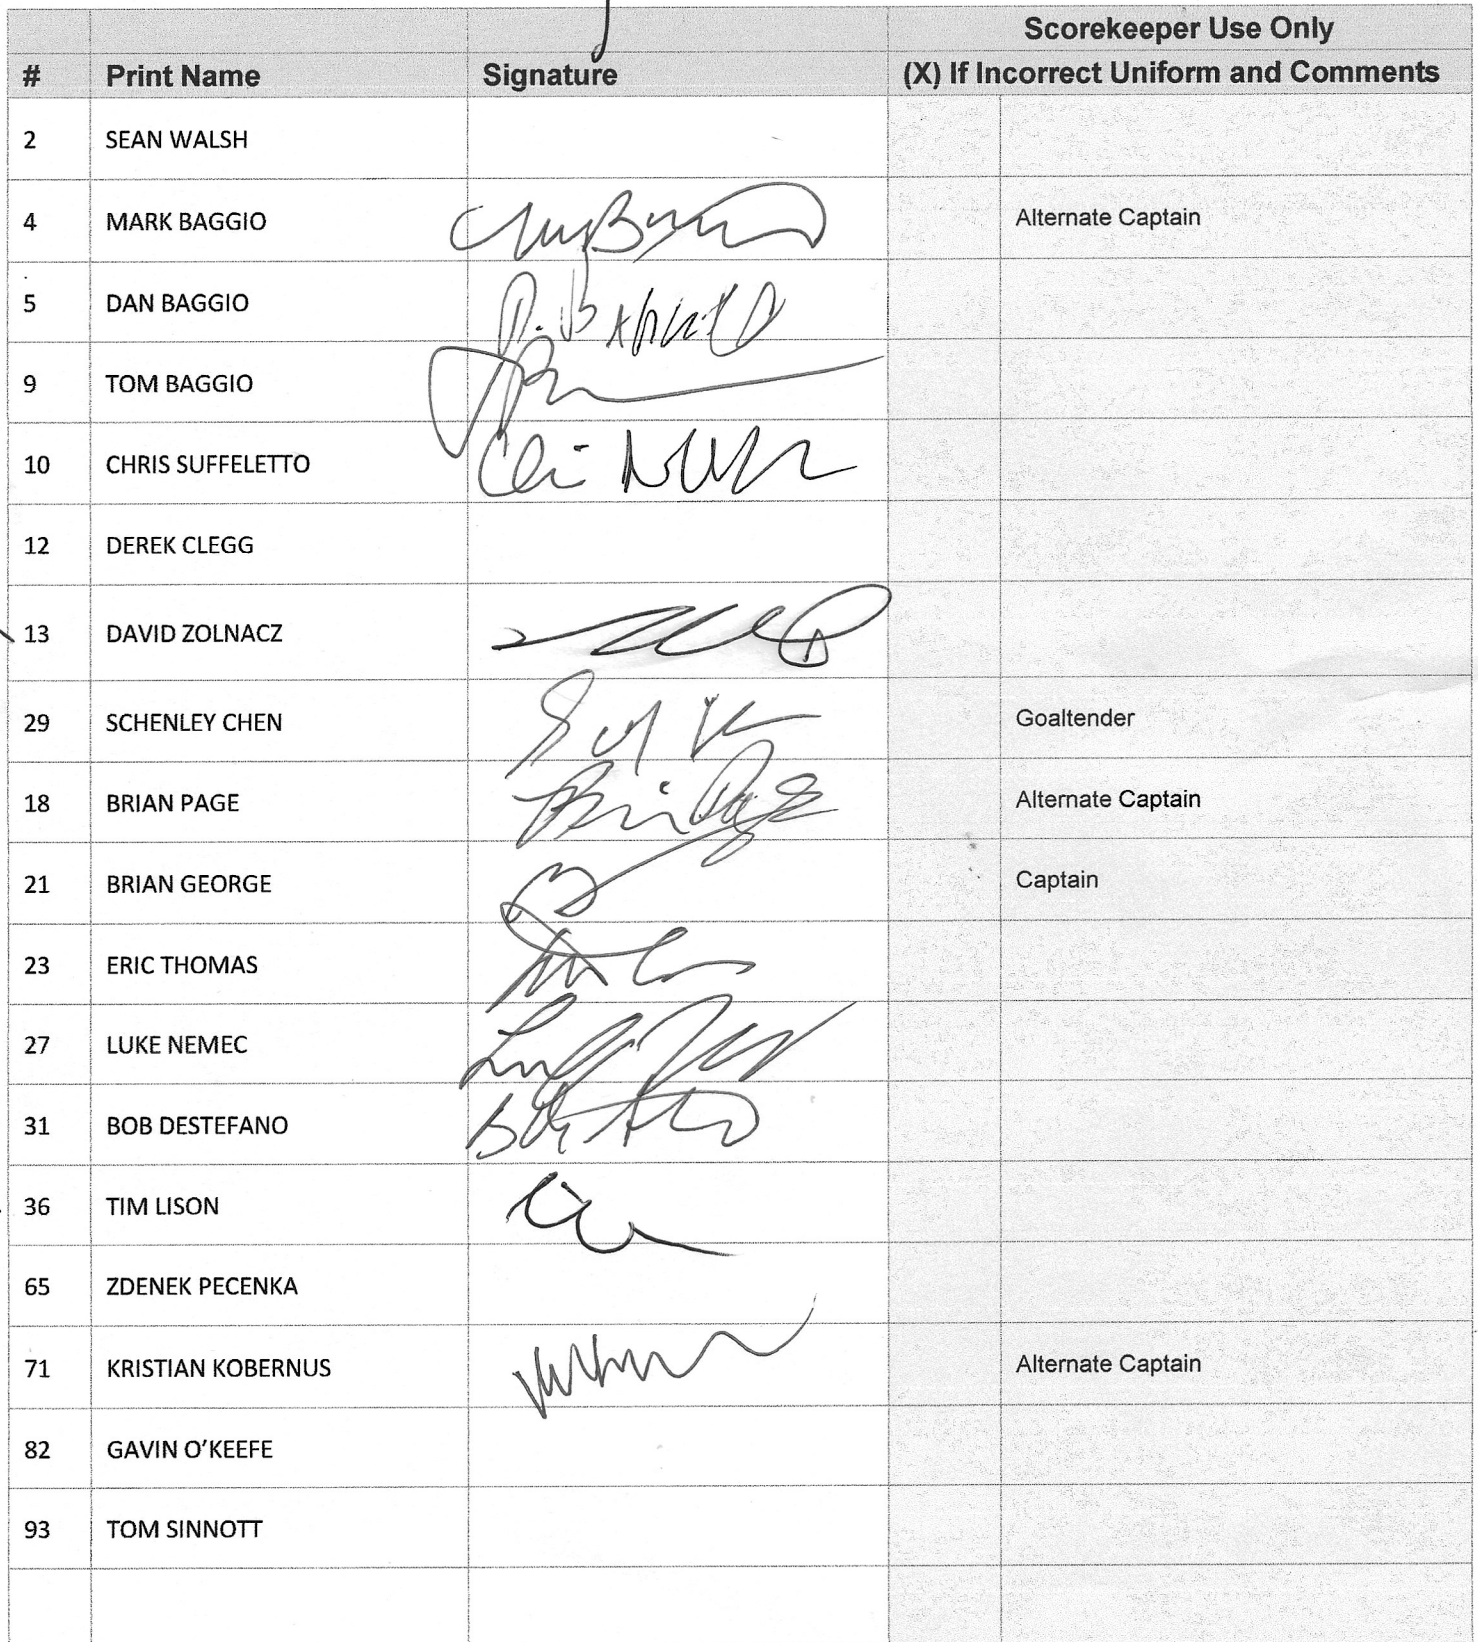 Scorekeeper Use Only
# Print Name Signature (X) If Incorrect Uniform and Comments
2 SEAN WALSH
4 MARK BAGGIO Alternate Captain
5 DAN BAGGIO
9 TOM BAGGIO
10 CHRIS SUFFELETTO
12 DEREK CLEGG
13 DAVID ZOLNACZ
29 SCHENLEY CHEN Goaltender
18 BRIAN PAGE Alternate Captain
21 BRIAN GEORGE Captain
23 ERIC THOMAS
27 LUKE NEMEC
31 BOB DESTEFANO
36 TIM LISON
65 ZDENEK PECENKA
71 KRISTIAN KOBERNUS Alternate Captain
82 GAVIN O’KEEFE
93 TOM SINNOTT